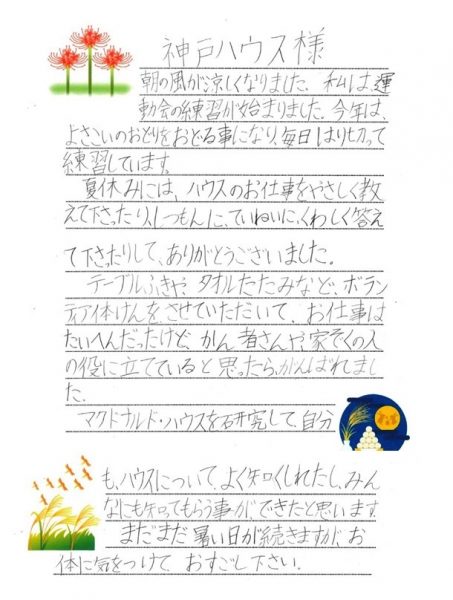 神戸ハウス様
朝の風が涼しくなりました。私は運
動会の練習が始まりました。今年は、
よさこいのおどりをおどる事になり、毎日はり切って
練習しています。
夏休みには、ハウスのお仕事をやさしく教
えて下さったり、しつもんに、ていねいに、くわしく答え
て下さったりして、ありがとうございました。
テーブルふきや、タオルたたみなど、ボラン
ティア体けんをさせていただいて、お仕事は
たいへんだったけど、かん者さんや、家ぞくの人
の役に立てていると思ったら、がんばれまし
た。
マクドナルド・ハウスを研究して、自分
も、ハウスについてよく知れたし、みん
なにも知ってもらう事ができたと思います。
まだまだ暑い日が続きますが、お
体に気をつけておすごし下さい。